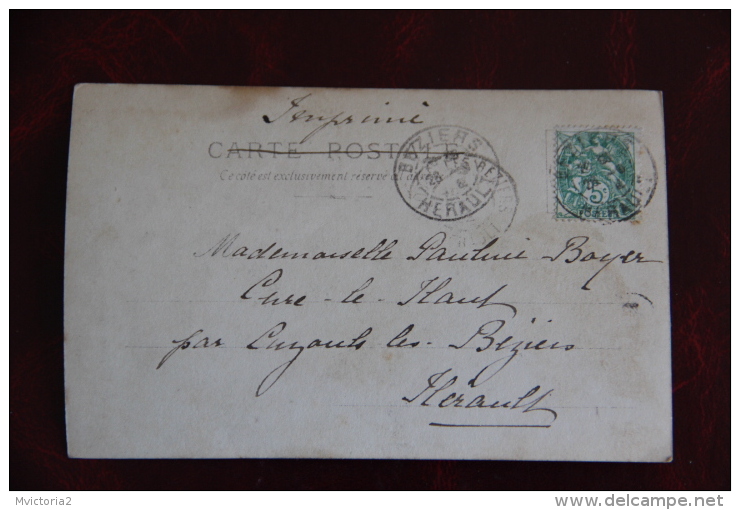 Imprimé
CARTE POSTALE
Ce côté est exclusivement réservé
BÉZIERS
HERAULT
5
Mademoiselle Pauline Boyer
Cure-le-Haut
par Cazouls les-Béziers
Hérault
Mvictoria2
www.delcampe.net